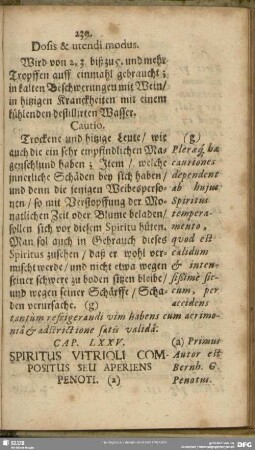 230.
Dosis & utendi modus.
Wird von 2. 3. biß zu 5. und mehr
Tropffen auff einmahl gebraucht;
in kalten Beschwerungen mit Wein/
in hitzigen Kranckheiten mit einem
kühlenden destillirten Wasser.
Cautio.
Trockene und hitzige Leute / wie
auch die ein sehr empfindlichen Ma-
genschlund haben; Item / welche
innerliche Schäden bey sich haben /
und denn die jenigen Weibesperso-
nen / so mit Verstopffung der Mo-
natlichen Zeit oder Blume beladen/
sollen sich vor diesem Spiritu hüten.
Man sol auch in Gebrauch dieses
Spiritus zusehen / daß er wohl ver-
mischt werde / und nicht etwa wegen
seiner schwere zu boden sitzen bleibe/
und wegen seiner Schärffe / Scha-
den verursache. (g)
(g)
Pleræq; hæ
cautiones
dependent
ab hujus
Spiritus
tempera-
mento,
quod est
calidum
& inten-
sissimè sic-
cum, per
accidens
tantum refrigerandi vim habens cum acrimo-
niâ & adstrictione satis validâ.
CAP. LXXV.
SPIRITUS VITRIOLI COM-
POSITUS SEU APERIENS
PENOTI. (a)
(a) Primus
Autor est
Bernh. G.
Penotus.